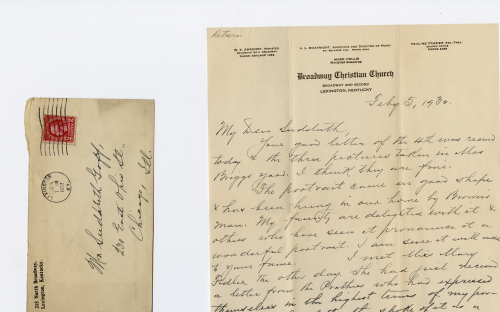 Return
W. S. Sweeney, Minister
A. L. Boatright, Associate and Director of Music
Mark Collis
Minister Emeritus
Broadway Christian Church
Broadway and Second
Lexington, Kentucky
Feby 5, 1930.
My Dear Sudduth,
Your good letter of the 4th was received
today & the three pictures taken in Miss
Briggs yard. I think they are fine.
The portrait came in good shape
& has been hung in our home by
man. My family are delighted with it &
others who have seen it pronounce it a
wonderful portrait. I am sure it will add
to your fame. I met Miss Mary
the other day. She had just received
a letter from the who had expressed
themselves in the highest terms of my por-
spoke of it as a
Mr Sudduth Goff,
East Ohio St.
Chicago, Ill.
Lexington
KY.
315 North Broadway,
Lexington, Kentucky.